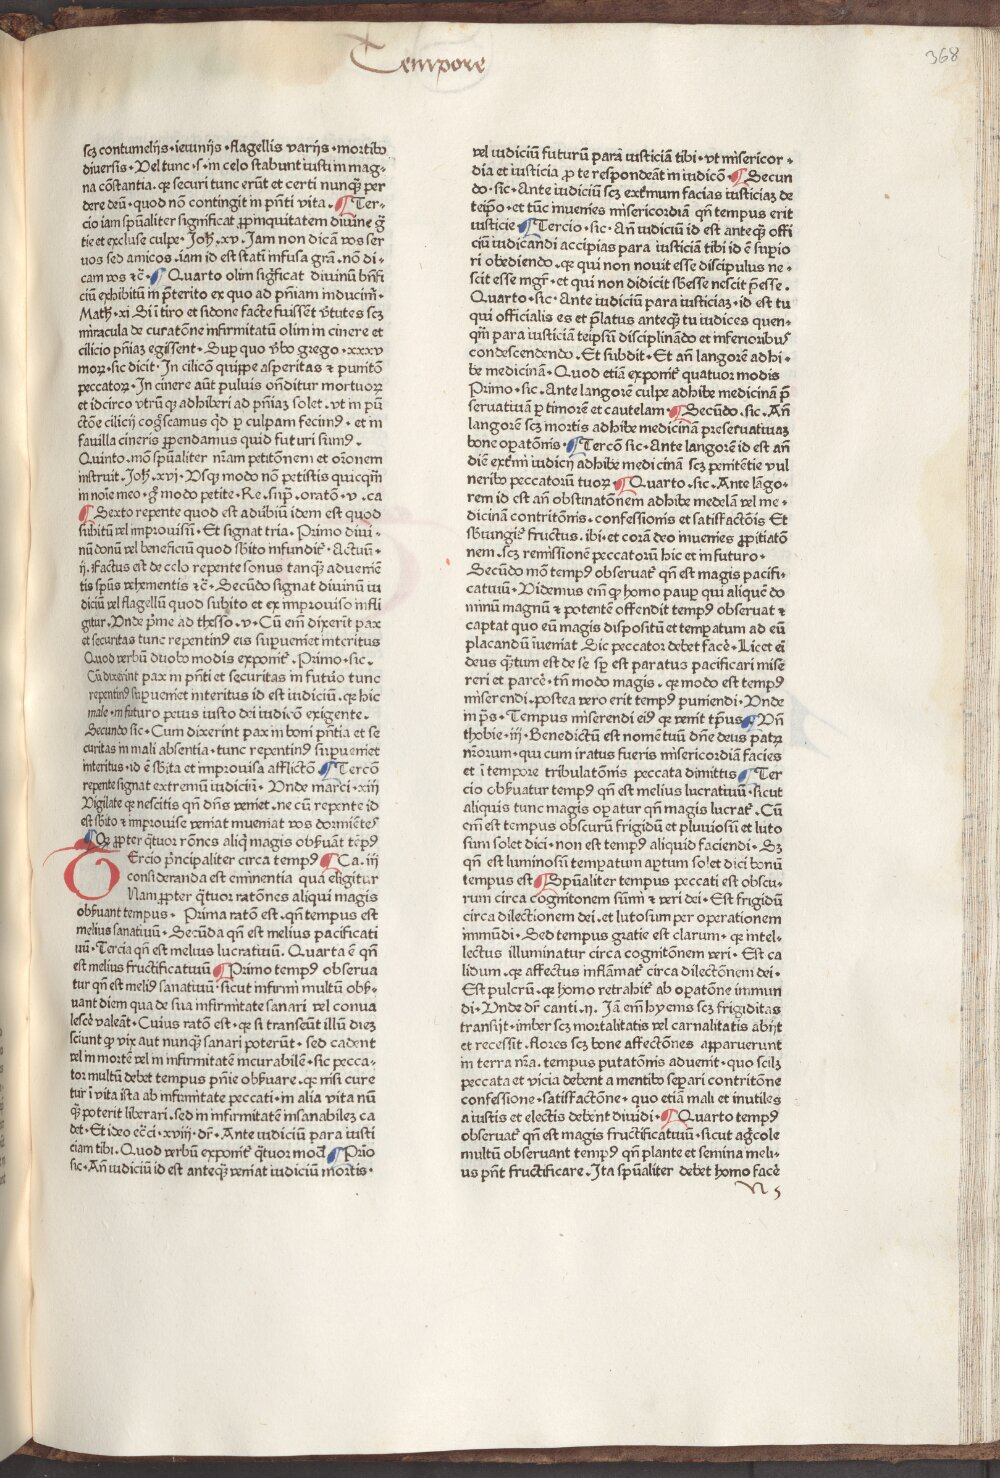 Tempore
368
scꝫ contumelijs·ieiunijs·flagellis varijs·mortibꝰ
diuersis·Vel tunc·s·in celo stabunt iusti in mag-
na cōstantia.qꝛ securi tunc erūt et certi nunqͣꝫ per
dere deū·quod nō contingit in p̄nti vita.¶Ter-
cio iam spūaliter significat ꝓpinquitatem diuine gr̄
tie et excluse culpe·Joh̄.xv.Jam non dicā vos ser
uos sed amicos.iam id est stati infusa gr̄a.nō di-
cam vos ⁊c̄·¶Quarto olim sigficat diuinū bn̄fi
ciū exhibitū in p̄terito ex quo ad pn̄iam inducim̄·
Math̄·xi Si ī tiro et sidone facte fuissēt v̄tutes scꝫ
miracula de curatōne infirmitatū olim in cinere et
cilicio pn̄iaꝫ egissent·Suꝑ quo v̄bo grego·xxxv
morꝝ·sic dicit·In cilicō quippe asperitas ⁊ punitō
peccatorꝝ·In cinere aūt puluis on̄ditur mortuorꝝ
et idcirco vtrū qꝫ adhiberi ad pn̄iaꝫ solet.vt in pū
ctōe cilicij cog̾scamus qd̄ ꝑ culpam fecimꝰ·et in
fauilla cineris ꝑpendamus quid futuri sumꝰ.
Quinto·mō spūaliter nr̄am petitōnem et orōnem
instruit.Joh̄.xvi·Vsqꝫ modo nō petistis quicqͣm
in noīe meo·gͦ modo petite·Re.sup̄.oratō·v.ca
¶Sexto repente quod est aduībiū idem est quod
subitū vel improuisū·Et signat tria.Primo diui-
nū donū vel beneficiū quod sb̄ito infunditᷣ·Actuū·
ij.Factus est de celo repente sonus tanqͣꝫ aduenien
tis spūs vehementis ⁊c̄·Secūdo signat diuinū iu
diciū vel flagellū quod subito et ex improuiso infli
gitur.Vnde pͥme ad thesso.v.Cū em̄ dixerit pax
et securitas tunc repentinꝰ eis supueniet interitus
Quod verbū duobꝰ modis exponitᷣ.Primo·sic.
Cū dixerint pax in p̄nti et securitas in futuro tunc
repentinꝰ supueniet interitus id est iudiciū.qꝛ hic
male·in futuro peius iusto dei iudicō exigente.
Secundo sic·Cum dixerint pax in boni pn̄tia et se
curitas in mali absentia·tunc repentinꝰ supueniet
interitus·id ē sb̄ita et improuisa afflictō.¶Tercō
repente signat extremū iudiciū·Vnde marci·xiij
Vigilate qꝛ nescitis qn̄ dn̄s veniet.ne cū repente id
est sb̄ito ⁊ improuise veniat inueniat vos dormiētes
¶Qꝛ ꝓpter qͣtuor rōnes aliqͥ magis obſuāt tēpꝰ
Tercio pͥncipaliter circa tempꝰ ¶Ca.iij
consideranda est eminentia qua eligitur
Nam ꝓpter qͣtuor ratōnes aliqui magis
obſuant tempus·Prima ratō est.qn̄ tempus est
melius sanatiuū·Secūda qn̄ est melius pacificati
uū·Tercia qn̄ est melius lucratiuū.Quarta ē qn̄
est melius fructificatiuū ¶Primo tempꝰ obserua
tur qn̄ est meliꝰ sanatiuū·sicut infirmi multū obſ-
uant diem qua de sua infirmitate sanari vel conua
lescē valeāt·Cuius ratō est·qꝛ si transeūt illū dieꝫ
sciunt qꝫ vix aut nunqͣꝫ sanari poterūt·sed cadent
vel in mortē vel in infirmitatē incurabilē·sic pecca-
tor multū debet tempus pn̄ie obſuare.qꝛ nisi cure
tur ī vita ista ab infirmitate peccati·in alia vita nū
qͣꝫ poterit liberari.sed in infirmitatē insanabileꝫ ca
det·Et ideo ecc̄i·xviij·dr̄·Ante iudiciū para iusti
ciam tibi.Quod verbū exponitᷣ qͣtuor modꝭ ¶Prīo
sic·An̄ iudiciū id est anteqͣꝫ veniat iudiciū mortis·
vel iudiciū futurū para iusticiā tibi·vt misericor-
dia et iusticia ꝓ te respondeāt in iudicō·¶Secun
do·sic·Ante iudiciū scꝫ extͤmum facias iusticiaꝫ de
teipͦo·et tūc inuenies misericordiā qn̄ tempus erit
iusticie ¶Tercio·sic·An̄ iudiciū id est anteqͣꝫ offi
ciū iudicandi accipias para iusticiā tibi id ē supio
ri obediendo.qꝛ qui non nouit esse discipulus ne-
scit esse mgr̄·et qui non didicit sb̄esse nescit p̄esse.
Quarto·sic·Ante iudiciū para iusticiaꝫ·id est tu
qui officialis es et p̄latus anteqͣꝫ tu iudices quen-
qͣm para iusticiā teipsū disciplinādo et inferioribus
condescendendo.Et subdit·Et an̄ langorē adhi-
be medicinā·Quod etiā exponitᷣ quatuor modis
Primo·sic.Ante langorē culpe adhibe medicinā p̄
seruatiuā ꝑ timorē et cautelam·¶Secūdo.sic.An̄
langorē scꝫ mortis adhibe medicinā preseruatiuaꝫ
bone opatōnis·¶Tercō sic·Ante langorē id est an̄
diē extͤmi iudicij adhibe medicinā scꝫ penitētie vul
neribꝰ peccatorū tuorꝝ·¶Quarto.sic.Ante lāgo-
rem id est an̄ obstinatōnem adhibe medelā vel me-
dicinā contritōnis·confessionis et satiffactōis Et
sb̄iungitᷣ fructus.ibi·et corā deo inuenies ꝓpitiatō
nem.scꝫ remissionē peccatorū hic et in futuro·
Secūdo mō tempꝰ obseruatᷣ qn̄ est magis pacifi-
catiuū·Videmus em̄ qꝫ homo pauꝑ qui aliquē do
minū magnū ⁊ potentē offendit tempꝰ obseruat ⁊
captat quo eū magis dispositū et tempatum ad eū
placandū inueniat Sic peccator debet facē·Licet em̄
deus qͣꝫtum est de se sꝑ est paratus pacificari mise
reri et parcē·tn̄ modo magis.qꝛ modo est tempꝰ
miserendi.postea vero erit tempꝰ puniendi·Vnde
in pͥs·Tempus miserendi eiꝰ qꝛ venit tp̄us ¶Vn̄
thobie·iij·Benedictū est nomē tuū dn̄e deus patrꝝ
nr̄orum·qui cum iratus fueris misericordiā facies
et ī tempore tribulatōnis peccata dimittis ¶Ter
cio obſuatur tempꝰ qn̄ est melius lucratiuū·sicut
aliquis tunc magis opatur qn̄ magis lucratᷣ.Cū
em̄ est tempus obscurū frigidū et pluuiosū et luto
sum solet dici·non est tempꝰ aliquid faciendi·Sꝫ
qn̄ est luminosū tempatum aptum solet dici bonū
tempus est ¶Spūaliter tempus peccati est obscu-
rum circa cognitonem sūmi ⁊ veri dei·Est frigidū
circa dilectionem dei.et lutosum per operationem
inmūdi·Sed tempus gratie est clarum·qꝛ intel-
lectus illuminatur circa cognitōnem veri·Est ca
lidum.qꝛ affectus inflāmatᷣ circa dilectōnem dei·
Est pulcrū.qꝛ homo retrahitᷣ ab opatōne immun
di·Vnde dr̄ canti.ij.Jā em̄ hyems scꝫ frigiditas
transijt·imber scꝫ mortalitatis vel carnalitatis abijt
et recessit.flores scꝫ bone affectōnes apparuerunt
in terra nr̄a.tempus putatōnis aduenit·quo scilꝫ
peccata et vicia debent a mentibꝰ separi contritōne
confessione·satiffactōne·quo etiā mali et inutiles
a iustis et electis debent diuidi·¶Quarto tempꝰ
obseruatᷣ qn̄ est magis fructificatiuū·sicut agͥcole
multū obseruant tempꝰ qn̄ plante et semina meli-
us pn̄t fructificare.Ita spūaliter debet homo facē